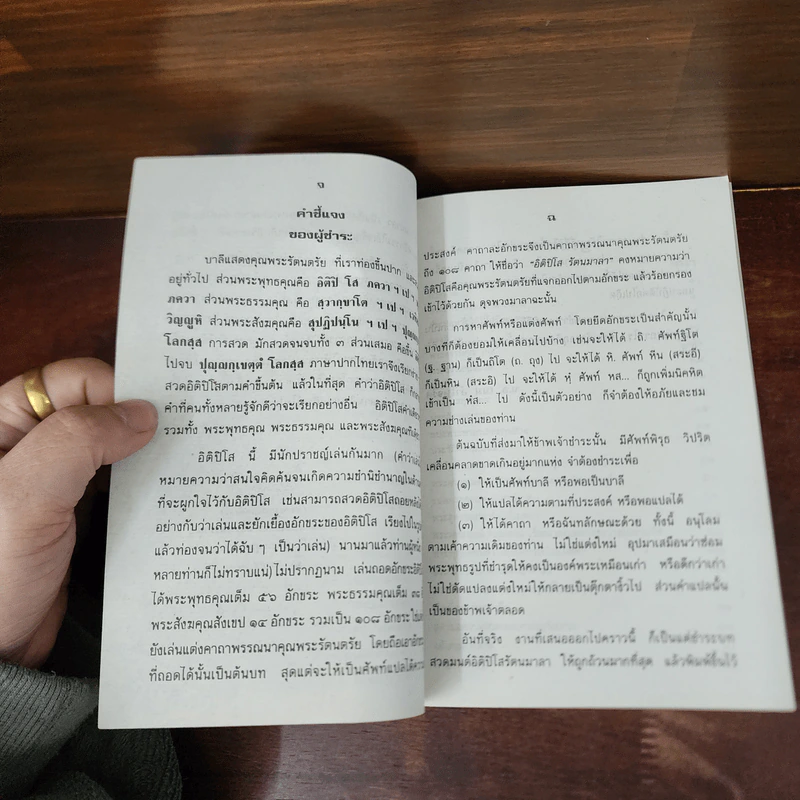 จ
คำชี้แจง
ของผู้ชำระ
บาลีแสดงคุณพระรัตนตรัย ที่เราท่องขึ้นปาก
อยู่ทั่วไป ส่วนพระพุทธคุณคือ อิติปิ โส ภควา ฯ เป ฯ
ภควา ส่วนพระธรรมคุณ คือ สฺวากฺขาโต ฯ เป ฯ
วิญฺญูหิ ส่วนพระสังฆคุณคือ สุปฏิปนฺโน ฯ เป ฯ
โลกสฺส การสวด มักสวดจนจบทั้ง ๓ ส่วนเสมอ คือขึ้น
ไปจบ ปุญฺญกฺเขตฺตํ โลกสฺส ภาษาปากไทยเราจึงเรียก
สวดอิติปิโสตามคำขึ้นต้น แล้วในที่สุด คำว่าอิติปิโส
คำที่คนทั้งหลายรู้จักดีว่าจะเรียกอย่างอื่น อิติปิโสคำ
รวมทั้ง พระพุทธคุณ พระธรรมคุณ และพระสังฆคุณ
อิติปิโส นี้ มีนักปราชญ์เล่นกันมาก
หมายความว่าสนใจคิดค้นจนเกิดความชำนิชำนาญใน
ที่จะผูกใจไว้กับอิติปิโส เช่นสามารถสวดอิติปิโสถอยหลัง
อย่างกับว่าเล่นและยักเยื้องอักขระของอิติปิโส เรียงไปใน
แล้วท่องจนว่าได้ฉับ ๆ เป็นว่าเล่น) นานมาแล้วท่านผู้
หลายท่านก็ไม่ทราบแน่)ไม่ปรากฏนาม เล่นถอดอักขระ
ได้พระพุทธคุณเต็ม ๕๖ อักขระ พระธรรมคุณเต็ม ๓๘
พระสังฆคุณสังเขป ๑๔ อักขระ รวมเป็น ๑๐๘ อักขระ
ยังเล่นแต่งคาถาพรรณนาคุณพระรัตนตรัย โดยถือเอา
ที่ถอดได้นั้นเป็นต้นบท สุดแต่จะให้เป็นศัพท์แปลได้
ฉ
ประสงค์ คาถาละอักขระจึงเป็นคาถาพรรณนาคุณพระรัตนตรัย
ถึง ๑๐๘ คาถา ให้ชื่อว่า “อิติปิโส รัตนมาลา” คงหมายความว่า
อิติปิโสคือคุณพระรัตนตรัยที่แจกออกไปตามอักขระ แล้วร้อยกรอง
เข้าไว้ด้วยกัน ดุจพวงมาลาฉะนั้น
การหาศัพท์หรือแต่งศัพท์ โดยยึดอักขระเป็นสำคัญนั้น
บางทีก็ต้องยอมให้เคลื่อนไปบ้าง เช่นจะให้ได้ ถิ. ศัพท์ฐิโต
(ฐ. ฐาน) ก็เป็นถิโต (ถ. ถุง) ไป จะให้ได้ หิ. ศัพท์ หีน (สระอี)
ก็เป็นหิน (สระอิ) ไป จะให้ได้ หํ ศัพท์ หส... ก็ถูกเพิ่มนิคหิต
เข้าเป็น หํส... ไป ดังนี้เป็นตัวอย่าง ก็จำต้องให้อภัยและชม
ความช่างเล่นของท่าน
ต้นฉบับที่ส่งมาให้ข้าพเจ้าชำระนั้น มีศัพท์พิรุธ วิปริต
เคลื่อนคลาดขาดเกินอยู่มากแห่ง จำต้องชำระเพื่อ
(๑) ให้เป็นศัพท์บาลี หรือพอเป็นบาลี
(๒) ให้แปลได้ความตามที่ประสงค์ หรือพอแปลได้
(๓) ให้ได้คาถา หรือฉันทลักษณะด้วย ทั้งนี้ อนุโลม
ตามเค้าความเดิมของท่าน ไม่ใช่แต่งใหม่ อุปมาเสมือนว่าซ่อม
พระพุทธรูปที่ชำรุดให้คงเป็นองค์พระเหมือนเก่า หรือดีกว่าเก่า
ไม่ใช่ดัดแปลงแต่งใหม่ให้กลายเป็นตุ๊กตางิ้วไป ส่วนคำแปลนั้น
เป็นของข้าพเจ้าตลอด
อันที่จริง งานที่เสนอออกไปคราวนี้ ก็เป็นแต่ชำระบท
สวดมนต์อิติปิโสรัตนมาลา ให้ถูกถ้วนมากที่สุด แล้วพิมพ์ขึ้นไว้